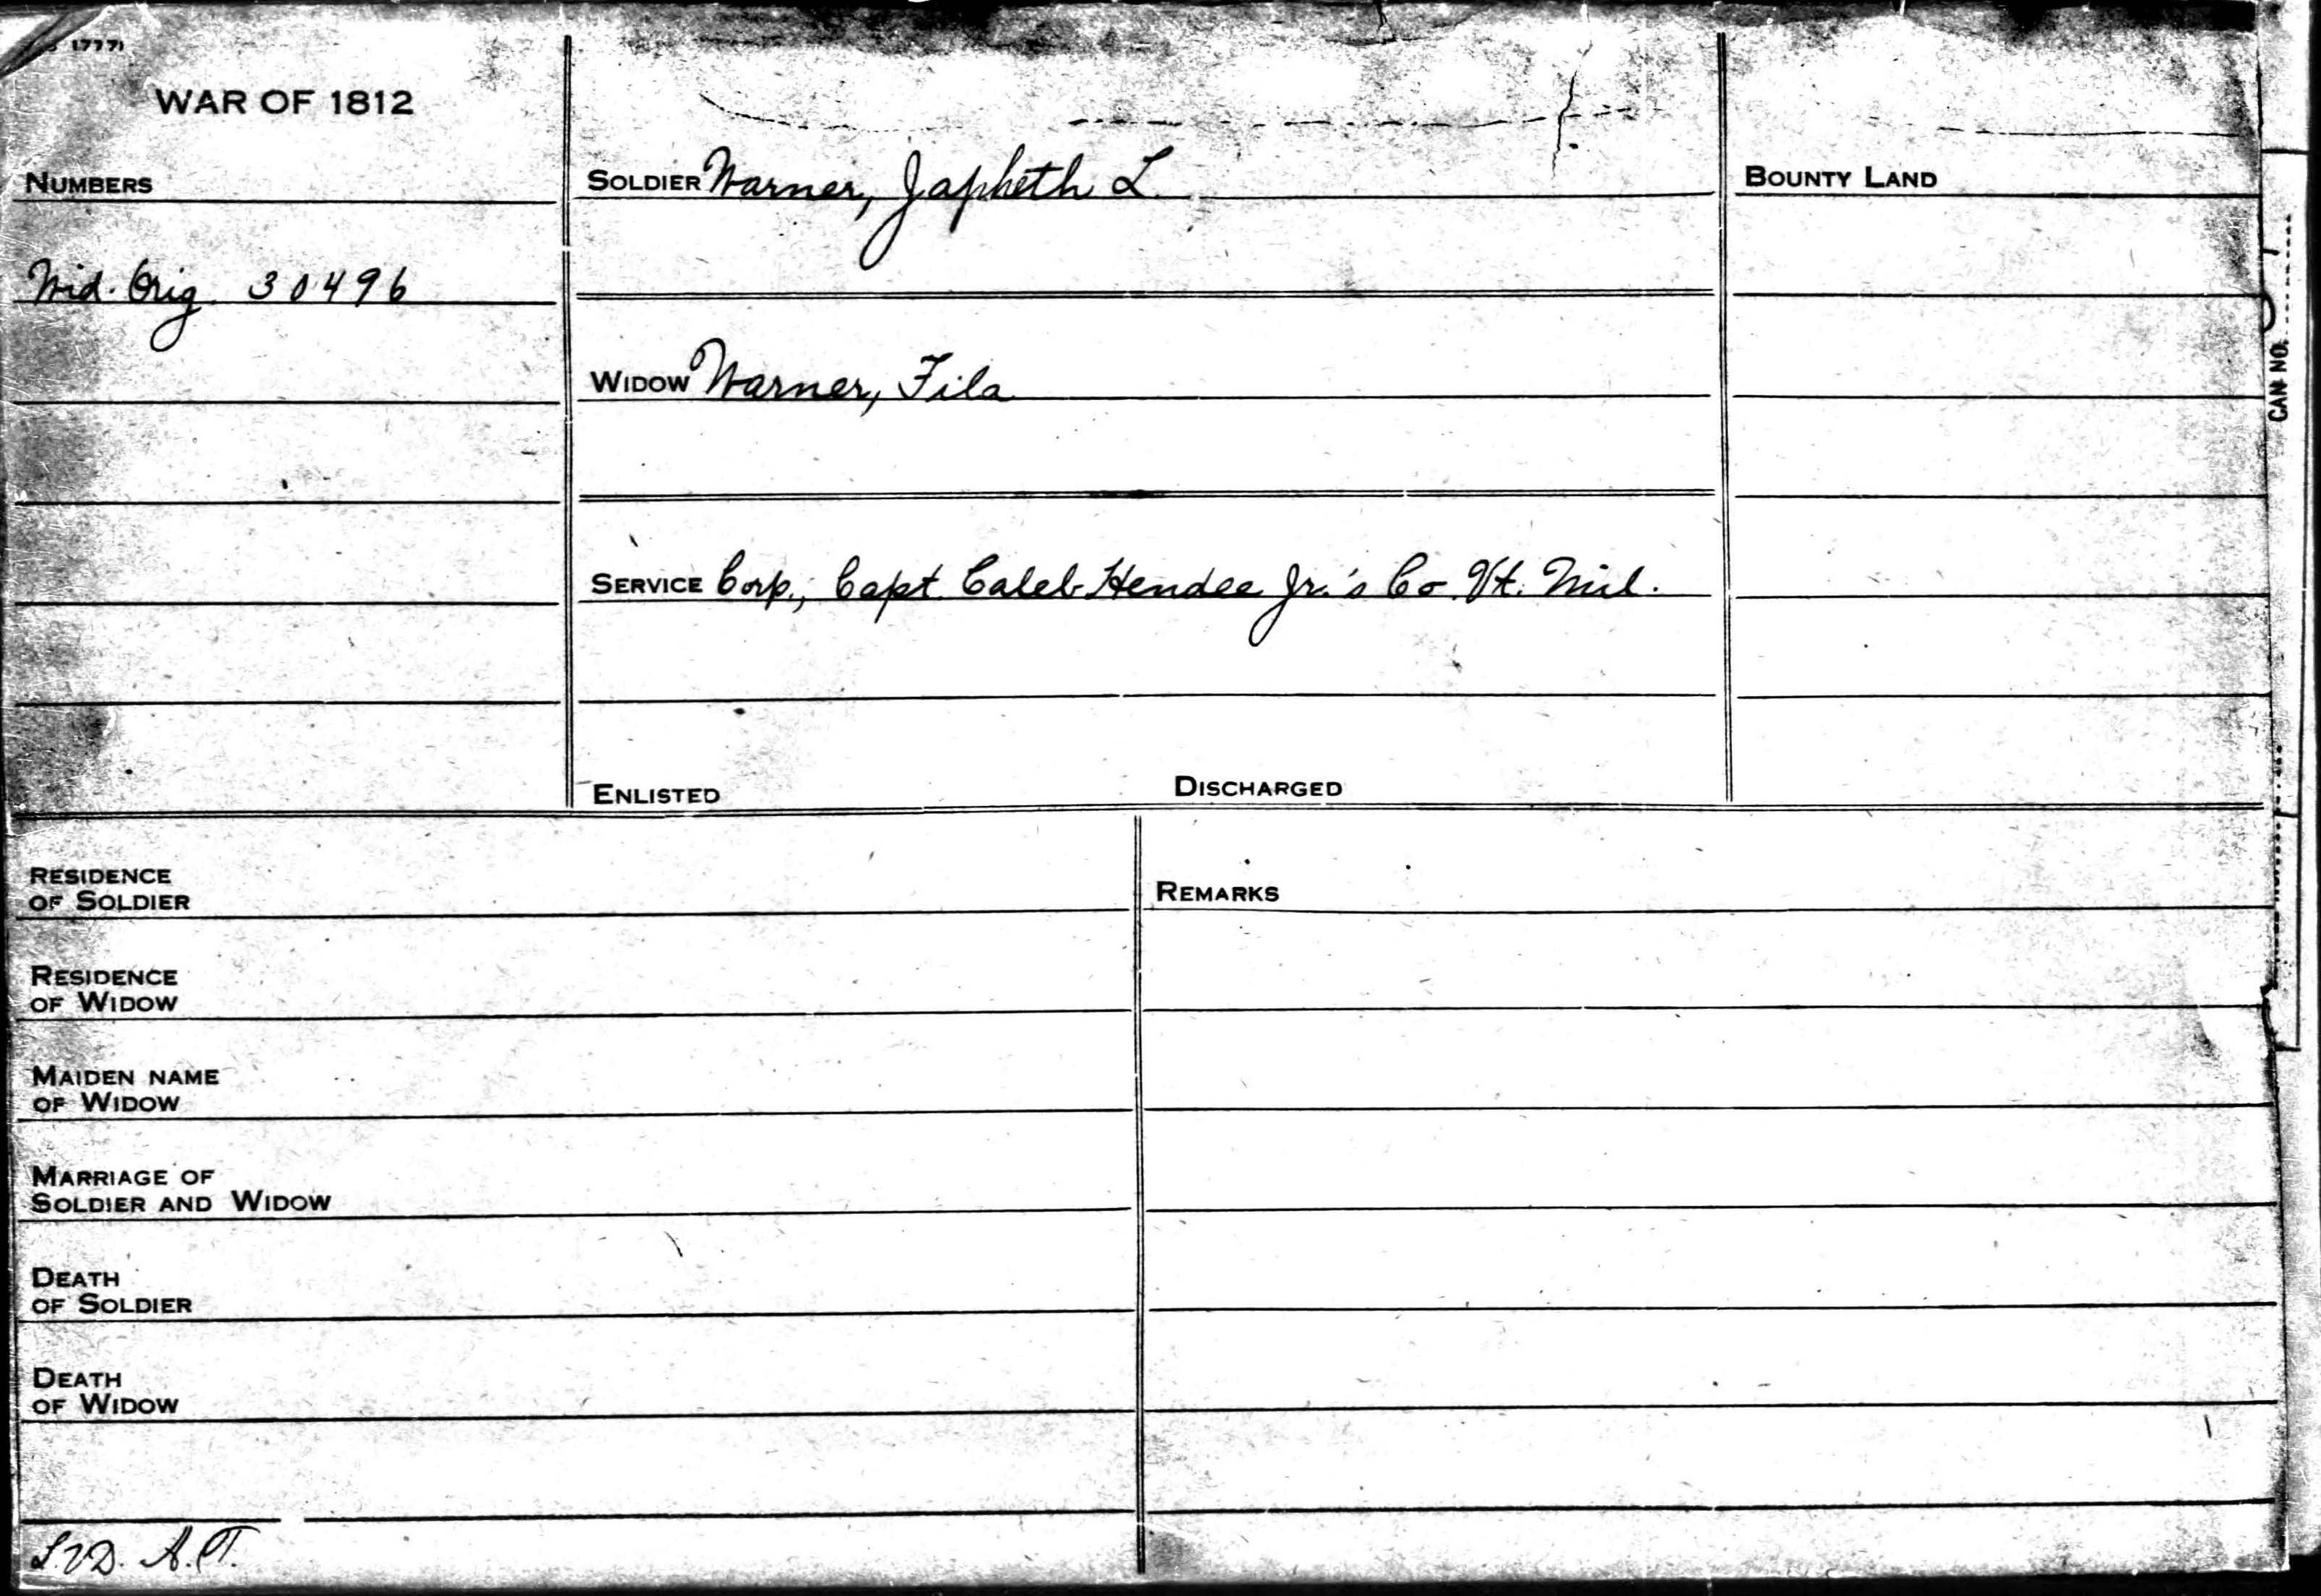 17771
WAR OF 1812
NUMBERS
Wid. Orig. 30496
SOLDIER Warner, Japheth L.
WIDOW Warner, Fila
SERVICE Corp., Capt. Caleb Hendee Jr.'s Co. Vt. Mil.
ENLISTED DISCHARGED
BOUNTY LAND
CAN NO.
RESIDENCE
OF SOLDIER
RESIDENCE
OF WIDOW
MAIDEN NAME
OF WIDOW
MARRIAGE OF
SOLDIER AND WIDOW
DEATH
OF SOLDIER
DEATH
OF WIDOW
REMARKS